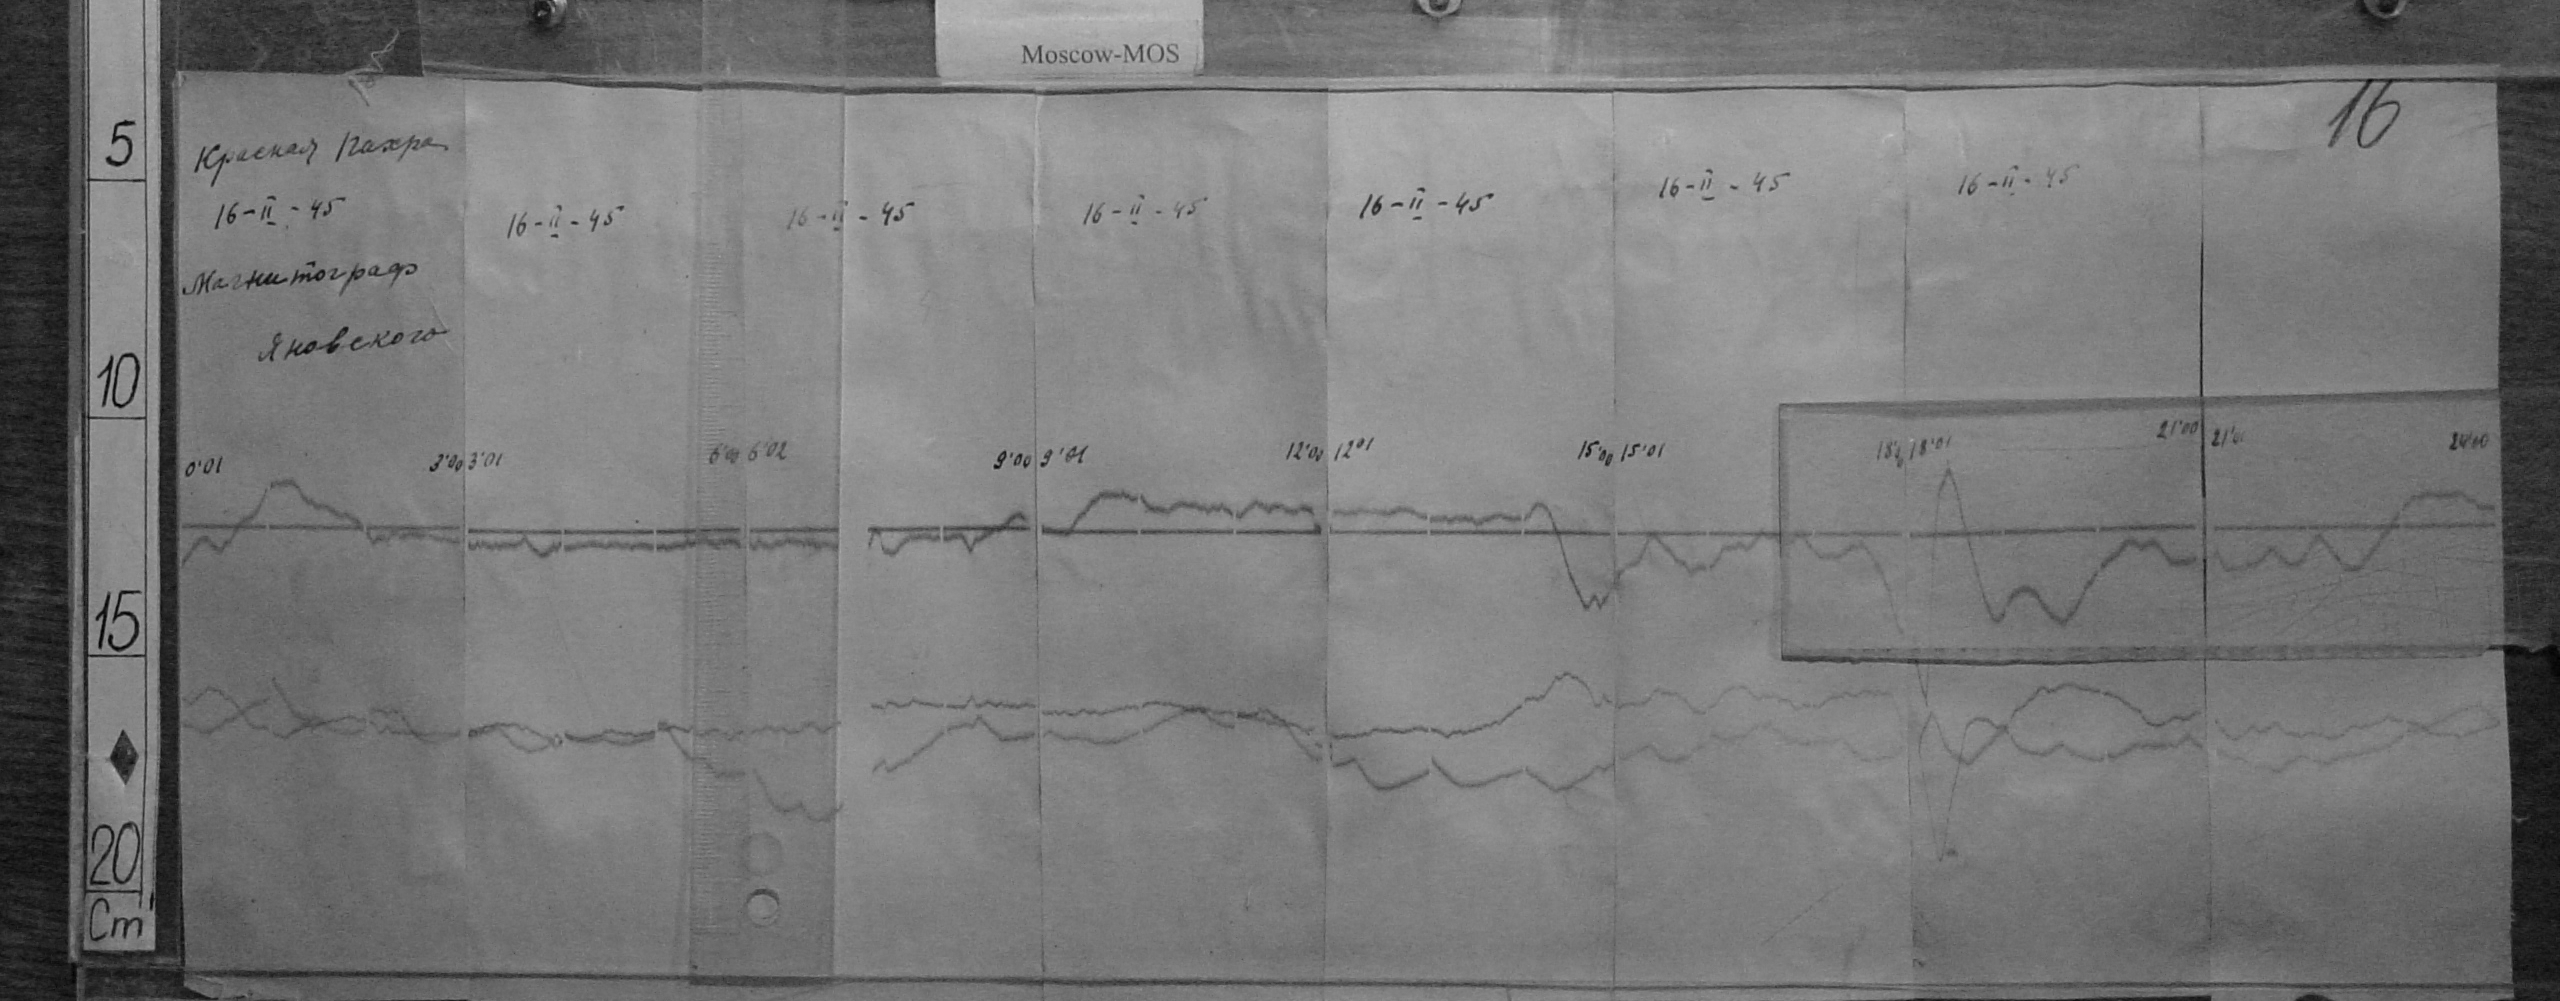 Moscow-MOS
16
Красная Пахра
16-II-45 16-II-45 16-II-45 16-II-45 16-II-45 16-II-45 16-II-45
Магнитограф
Яновского
0'01 3'00 3'01 6'00 6'02 9'00 9'01 12'00 12'01 15'00 15'01 18'01 21'00 24'00
5
10
15
20
Cm